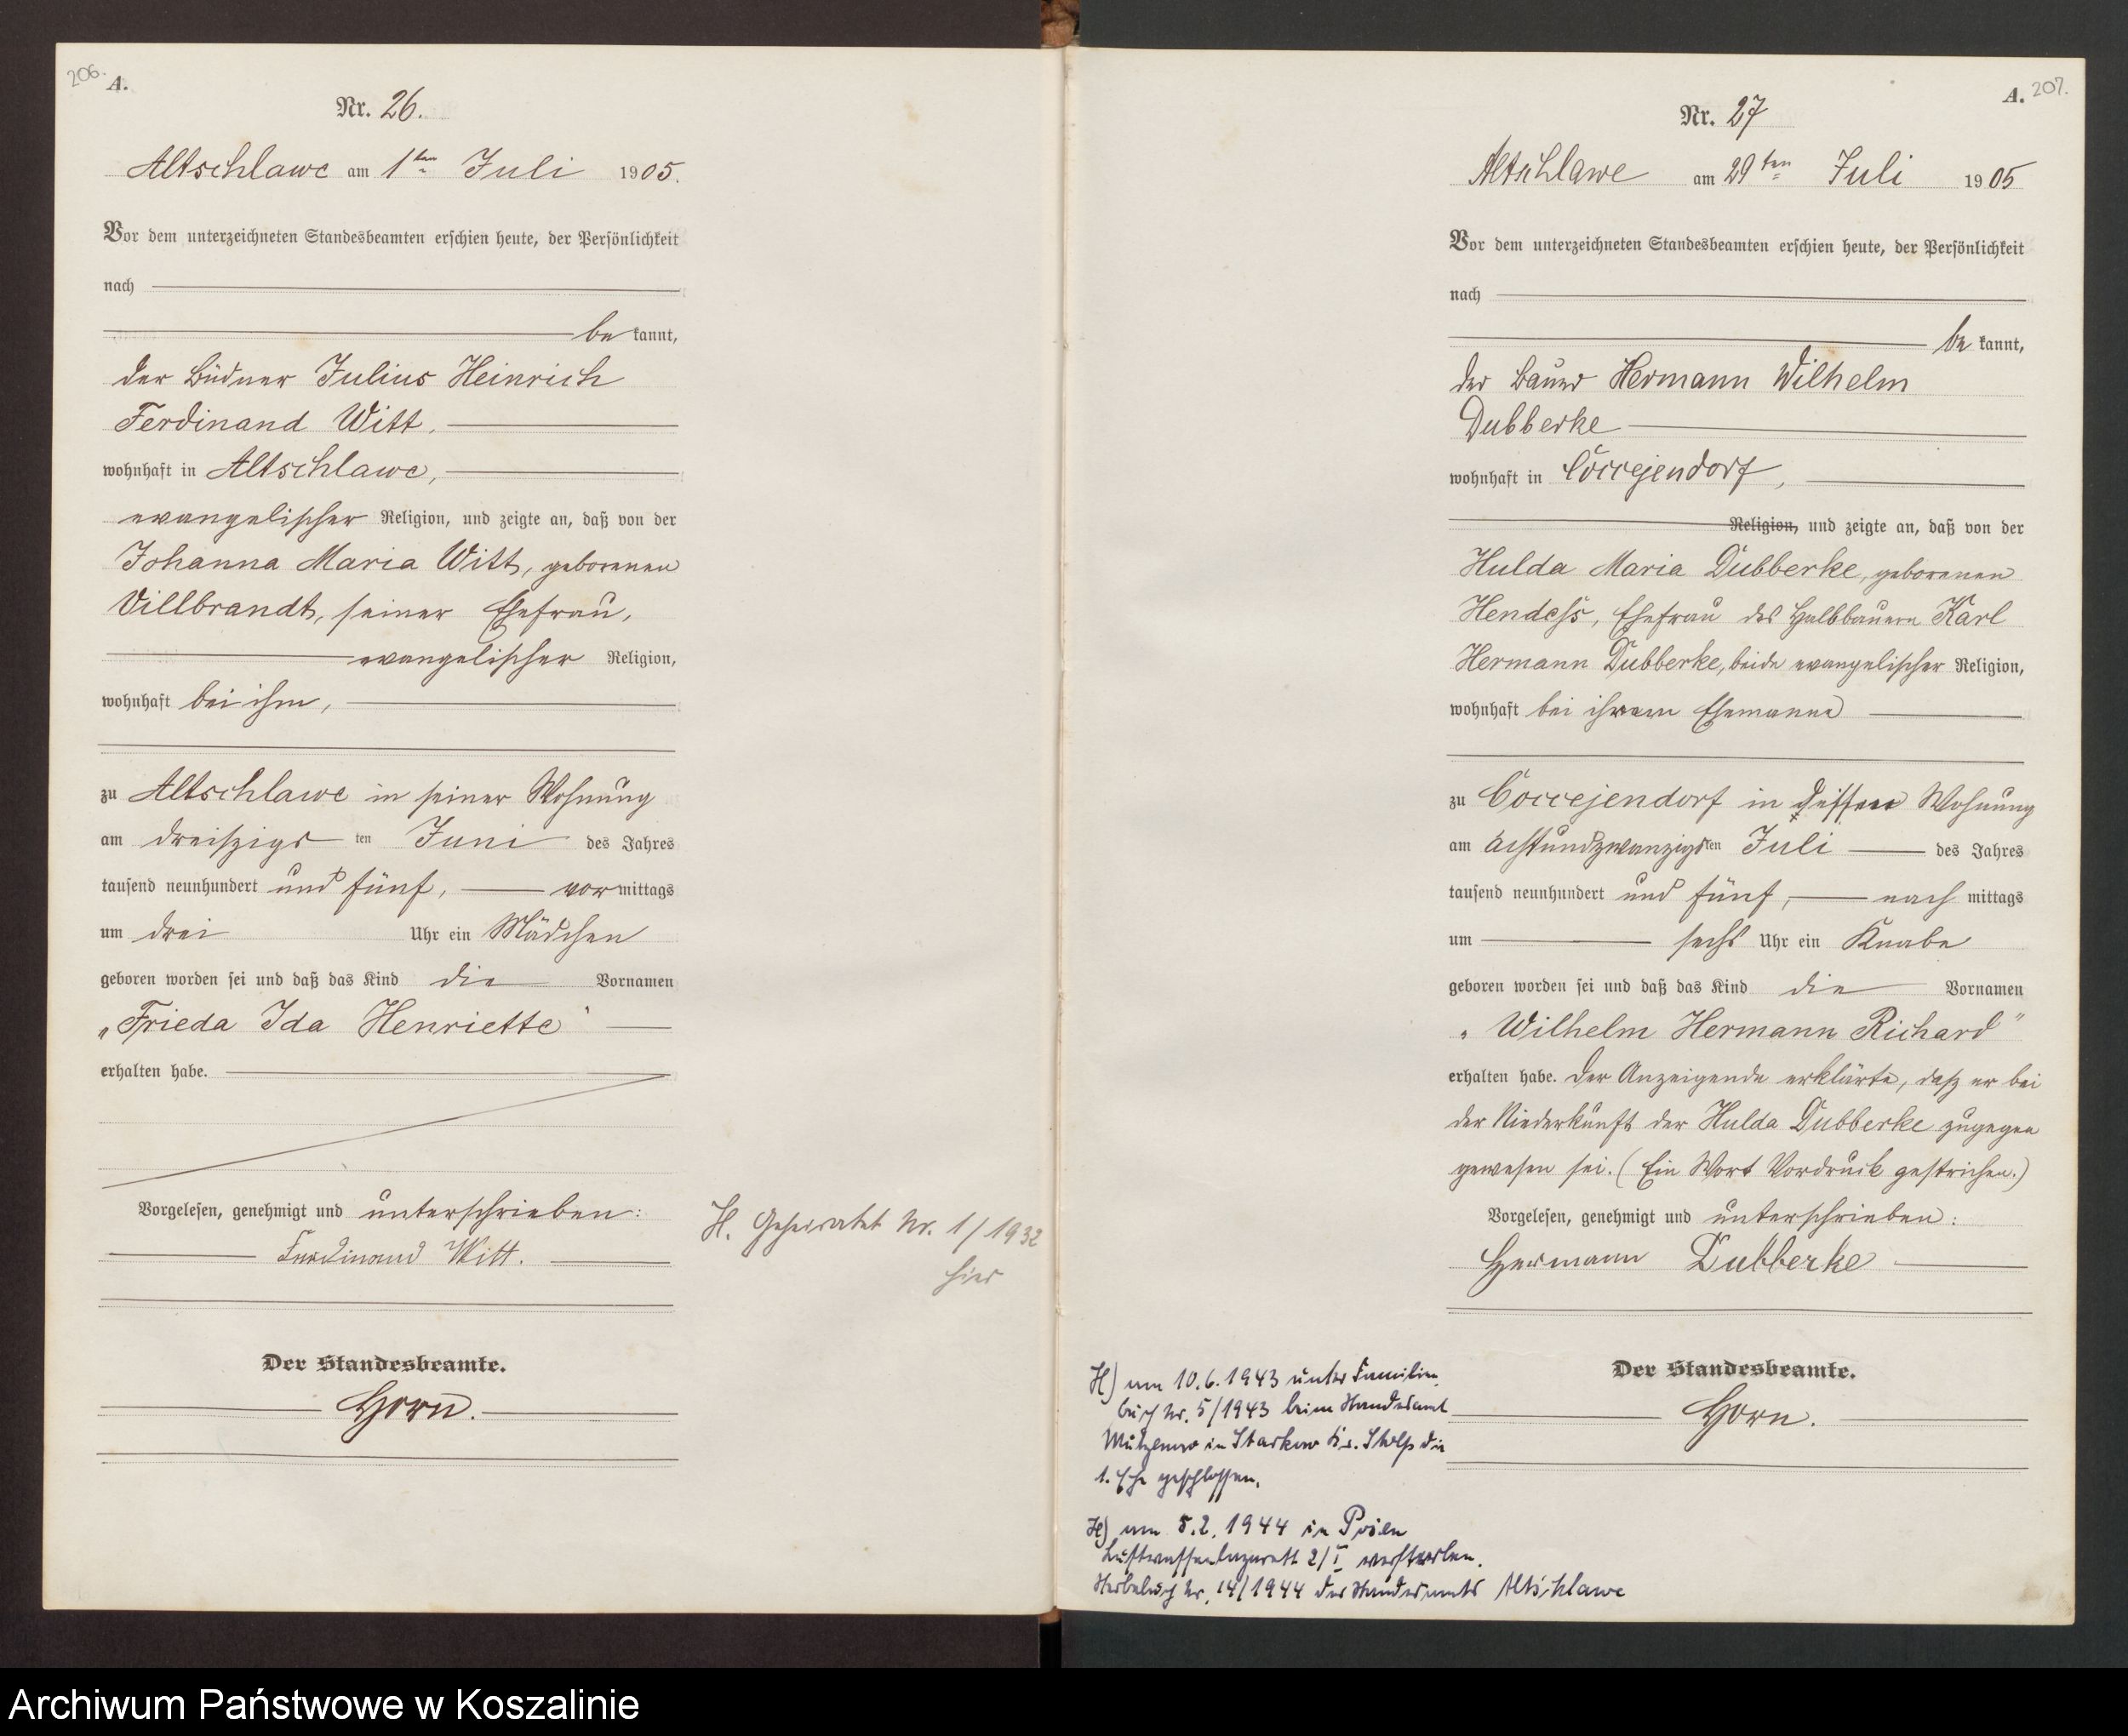 206.
A.
Nr. 26.
Altschlawe am 1ten Juli 1905.
Vor dem unterzeichneten Standesbeamten erschien heute, der Persönlichkeit
nach
be kannt,
der Büdner Julius Heinrich
Ferdinand Witt,
wohnhaft in Altschlawe,
evangelischer Religion, und zeigte an, daß von der
Johanna Maria Witt, geborenen
Villbrandt, seiner Ehefrau,
evangelischer Religion,
wohnhaft bei ihm,
zu Altschlawe in seiner Wohnung
am dreißigs ten Juni des Jahres
tausend neunhundert und fünf, vor mittags
um drei Uhr ein Mädchen
geboren worden sei und daß das Kind die Vornamen
„Frieda Ida Henriette"
erhalten habe.
Vorgelesen, genehmigt und unterschrieben:
Ferdinand Witt.
Der Standesbeamte.
Horn.
H. Geheiratet Nr. 1/1932
hier
A. 207.
Nr. 27
Altschlawe am 29ten Juli 1905
Vor dem unterzeichneten Standesbeamten erschien heute, der Persönlichkeit
nach
be kannt,
der Bauer Hermann Wilhelm
Dubberke
wohnhaft in Coccejendorf,
Religion, und zeigte an, daß von der
Hulda Maria Dubberke, geborenen
Hendeß, Ehefrau des Halbbauern Karl
Hermann Dubberke, beide evangelischer Religion,
wohnhaft bei ihrem Ehemanne
zu Coccejendorf in dessen Wohnung
am achtundzwanzigsten Juli des Jahres
tausend neunhundert und fünf, nach mittags
um sechs Uhr ein Knabe
geboren worden sei und daß das Kind die Vornamen
„Wilhelm Hermann Richard"
erhalten habe. Der Anzeigende erklärte, daß er bei
der Niederkunft der Hulda Dubberke zugegen
gewesen sei. (Ein Wort Vordruck gestrichen.)
Vorgelesen, genehmigt und unterschrieben:
Hermann Dubberke
Der Standesbeamte.
Horn.
H) am 10.6.1943 unter Familien
buch Nr. 5/1943 beim Standesamt
Mützenow in Starkow Kr. Stolp die
1. Ehe geschlossen.
am 5.2.1944 in
Luftwaffenlazarett 2/I verstorben.
Sterbebuch Nr. 14/1944 des Standesamts Altschlawe
Archiwum Państwowe w Koszalinie